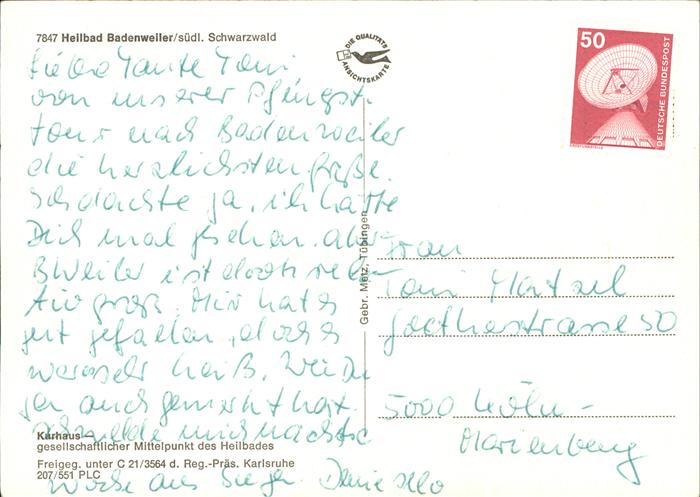 7847 Heilbad Badenweiler/südl. Schwarzwald
DIE QUALITÄTS
ANSICHTSKARTE
50
DEUTSCHE BUNDESPOST
Liebe Tante Toni
von unserer Pfingst-
tour nach Badenweiler
die herzlichsten Grüße.
Ich dachte ja, ich hätte
Dich mal gesehen. aber
BWeiler ist doch rela
tiv groß. Mir hat es
gut gefallen, doch es
war sehr heiß. Wie Du
ja auch gemerkt hast.
melde mich nächste
Woche aus
Gebr. Metz, Tübingen
Frau
Toni
Goethestrasse 50
5000 Köln-
Marienburg
Kurhaus –
gesellschaftlicher Mittelpunkt des Heilbades
Freigeg. unter C 21/3564 d. Reg.-Präs. Karlsruhe
207/551 PLC